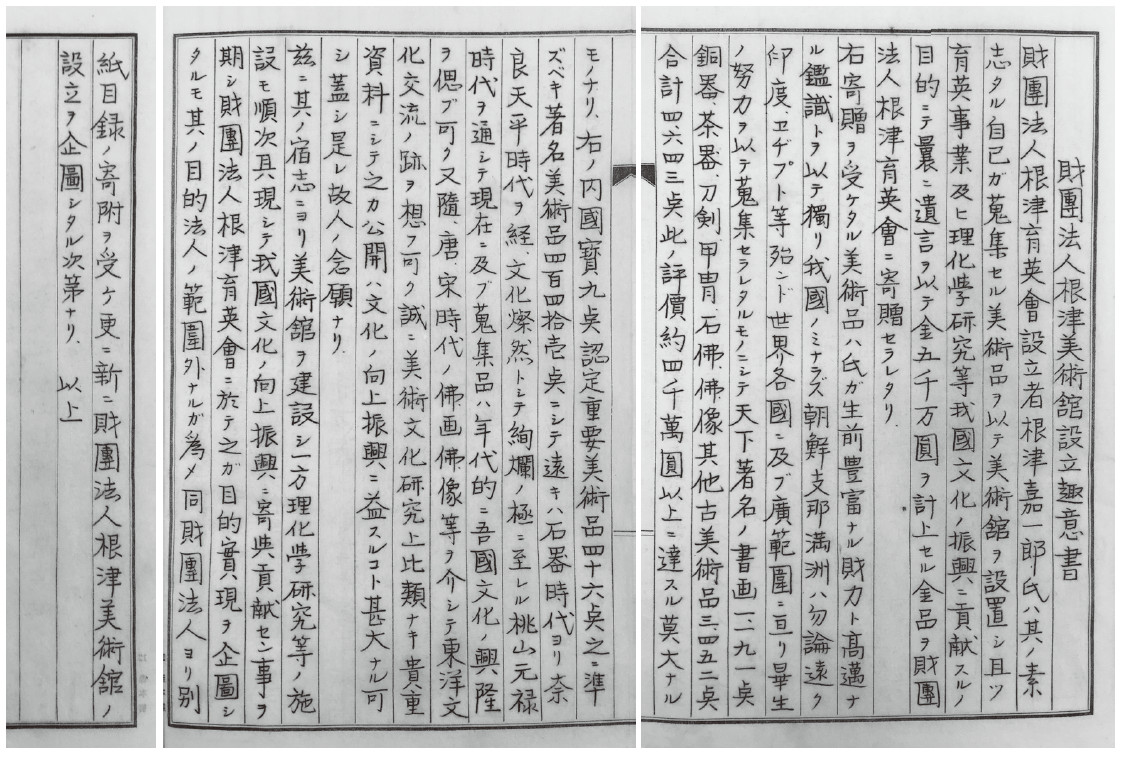 財團法人根津美術館設立趣意書
財團法人根津育英會設立者根津嘉一郎氏ハ其ノ素
志タル自己ガ蒐集セル美術品ヲ以テ美術館ヲ設置シ且ツ
育英事業及ヒ理化学研究等我國文化ノ振興ニ貢献スルノ
目的ニテ曩ニ遺言ヲ以テ金五千万圓ヲ計上セル金品ヲ財團
法人根津育英會ニ寄贈セラレタリ.
右寄贈ヲ受ケタル美術品ハ氏ガ生前豊富ナル財力ト高邁ナ
ル鑑識トヲ以テ獨リ我國ノミナラズ朝鮮支那満洲ハ勿論遠ク
印度、ヱヂプト等殆ンド世界各國ニ及ブ廣範圍ニ亘リ畢生
ノ努力ヲ以テ蒐集セラレタルモノニシテ天下著名ノ書画一、一九一点
銅器、茶器、刀剣、甲冑、石佛、佛像其他古美術品三、四五二点
合計四、六四三点此ノ評價約四千萬圓以上ニ達スル莫大ナル
モノナリ、右ノ内國寳九点認定重要美術品四十六点之ニ準
ズベキ著名美術品四百四拾壱点ニシテ遠キハ石器時代ヨリ奈
良天平時代ヲ経、文化燦然トシテ絢爛ノ極ニ至レル桃山元禄
時代ヲ通シテ現在ニ及ブ蒐集品ハ年代的ニ吾國文化ノ興隆
ヲ偲ブ可ク又隨、唐、宋時代ノ佛画佛像等ヲ介シテ東洋文
化交流ノ跡ヲ想フ可ク誠ニ美術文化研究上比類ナキ貴重
資料ニシテ之カ公開ハ文化ノ向上振興ニ益スルコト甚大ナル可
シ蓋シ是レ故人ノ念願ナリ.
茲ニ其ノ宿志ニヨリ美術館ヲ建設シ一方理化学研究等ノ施
設モ順次具現シテ我國文化ノ向上振興ニ寄与貢献セン事ヲ
期シ財團法人根津育英會ニ於テ之ガ目的實現ヲ企圖シ
タルモ其ノ目的法人ノ範圍外ナルガ為メ同財團法人ヨリ別
紙目録ノ寄附ヲ受ケ更ニ新ニ財團法人根津美術館ノ
設立ヲ企圖シタル次第ナリ. 以上